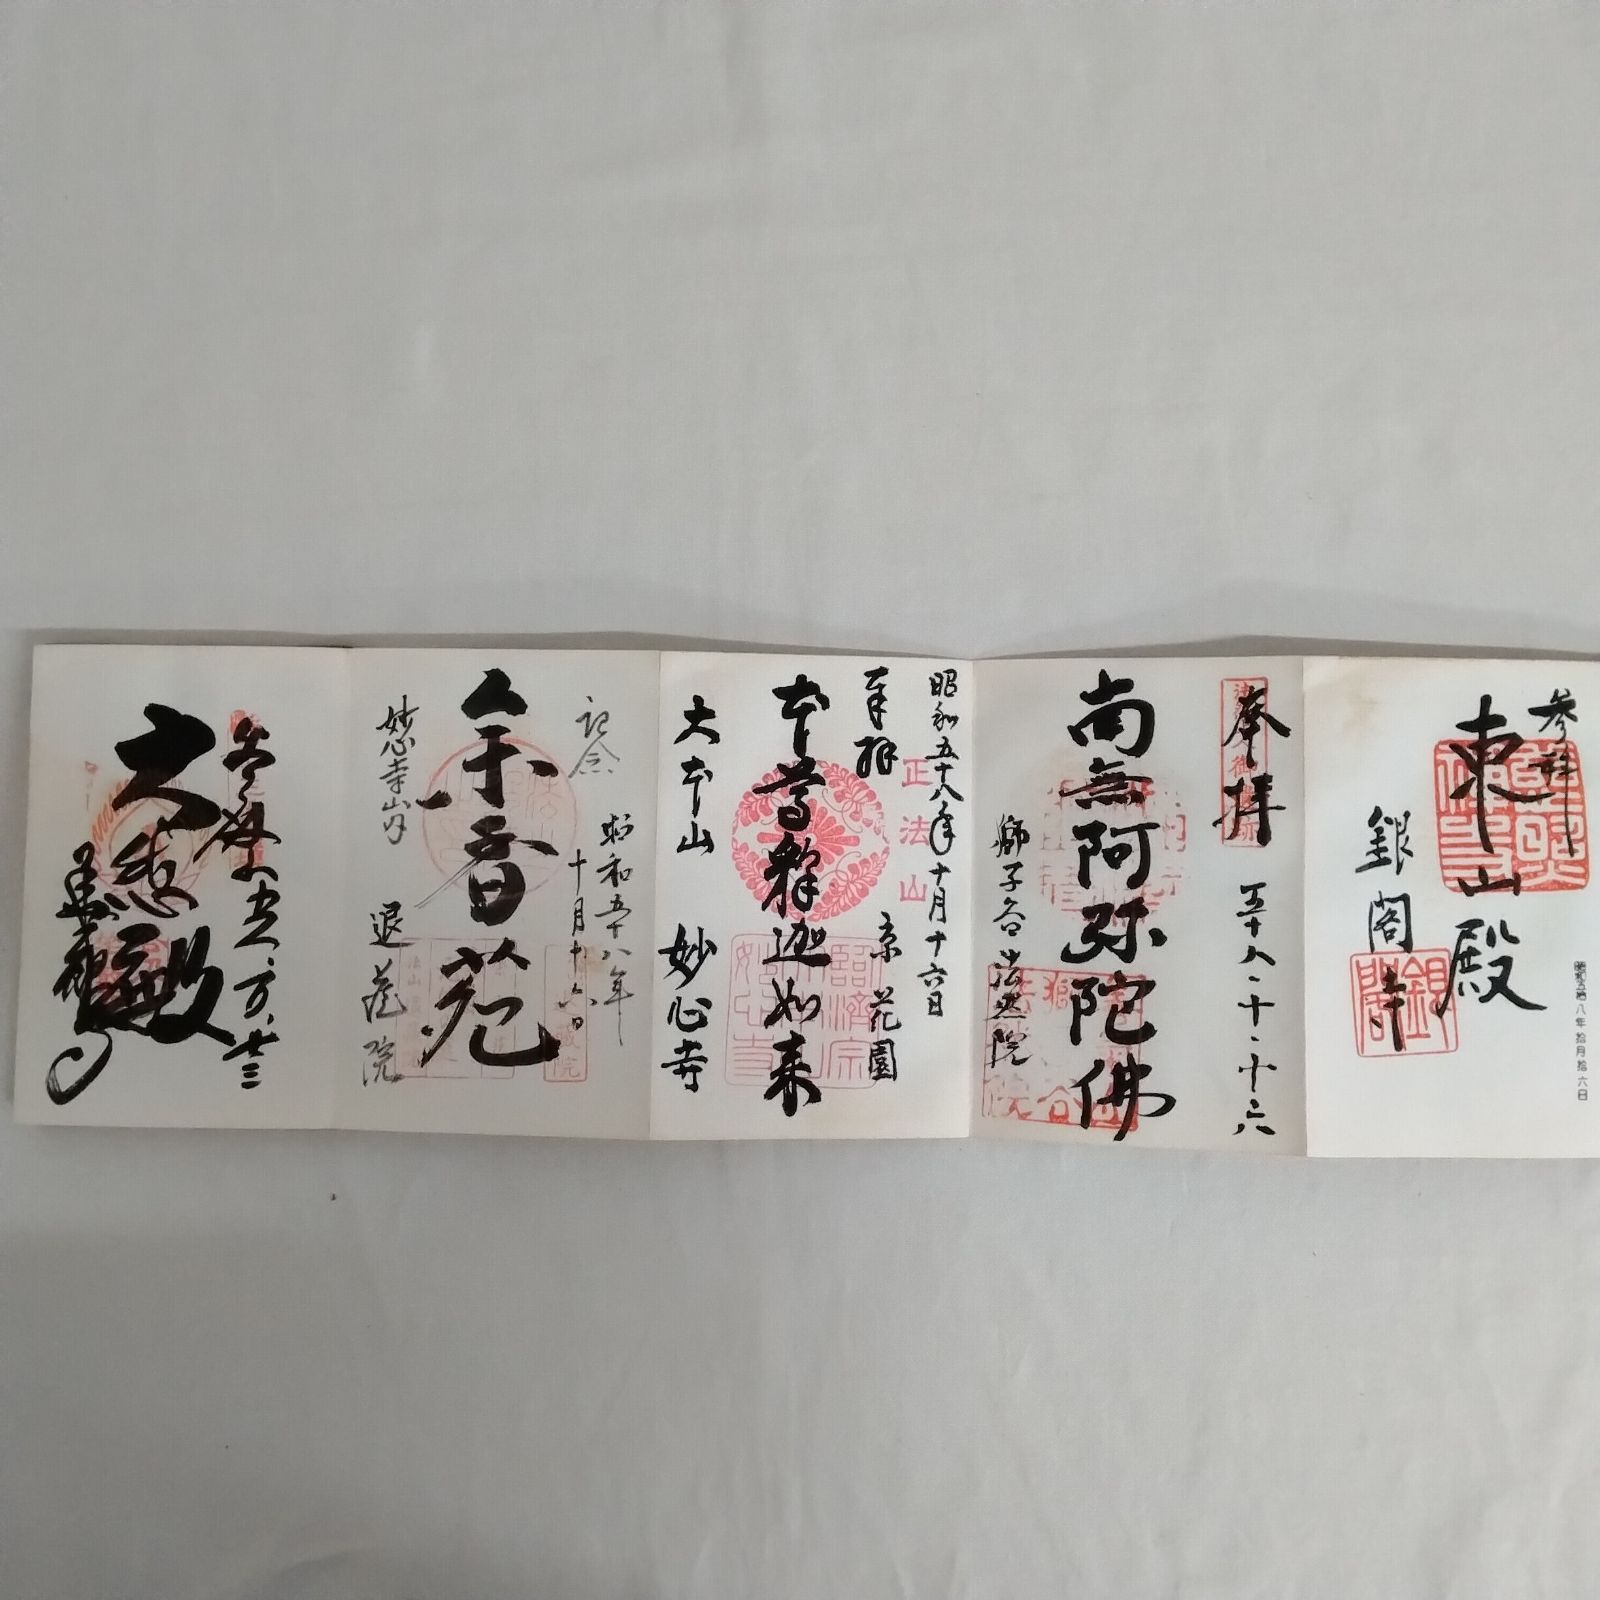 参拝
東山殿
銀閣寺
昭和五拾八年拾月拾六日
奉拝
五十八・十・十六
南無阿弥陀佛
獅子谷法然院
昭和五十八年十月十六日
奉拝
京花園
正法山
本尊釈迦如来
臨済宗
妙心寺
大本山
妙心寺
記念
昭和五十八年
十月十六日
余香苑
妙心寺山内
退蔵院
奉拝
大悲殿